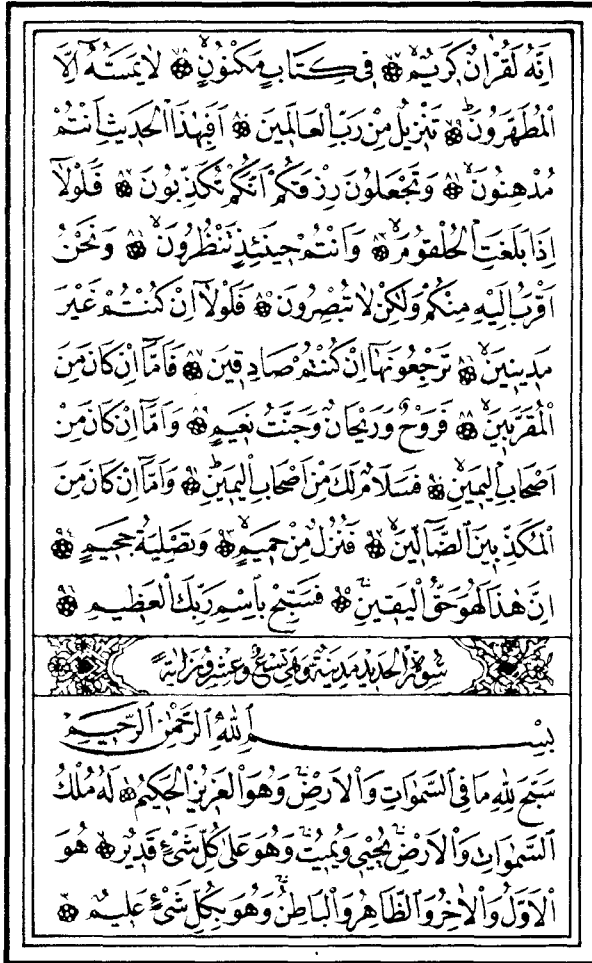 اِنَّهُ لَقُرْاٰنٌ كَرٖيمٌۙ ﴿٧٧﴾ فٖى كِتَابٍ مَكْنُونٍۙ ﴿٧٨﴾ لَا يَمَسُّهُٓ اِلَّا
الْمُطَهَّرُونَۜ ﴿٧٩﴾ تَنْزٖيلٌ مِنْ رَبِّ الْعَالَمٖينَ ﴿٨٠﴾ اَفَبِهٰذَا الْحَدٖيثِ اَنْتُمْ
مُدْهِنُونَۙ ﴿٨١﴾ وَتَجْعَلُونَ رِزْقَكُمْ اَنَّكُمْ تُكَذِّبُونَ ﴿٨٢﴾ فَلَوْلَٓا
اِذَا بَلَغَتِ الْحُلْقُومَۙ ﴿٨٣﴾ وَاَنْتُمْ حٖينَئِذٍ تَنْظُرُونَۙ ﴿٨٤﴾ وَنَحْنُ
اَقْرَبُ اِلَيْهِ مِنْكُمْ وَلٰكِنْ لَا تُبْصِرُونَ ﴿٨٥﴾ فَلَوْلَٓا اِنْ كُنْتُمْ غَيْرَ
مَدٖينٖينَۙ ﴿٨٦﴾ تَرْجِعُونَهَٓا اِنْ كُنْتُمْ صَادِقٖينَ ﴿٨٧﴾ فَاَمَّٓا اِنْ كَانَ مِنَ
الْمُقَرَّبٖينَۙ ﴿٨٨﴾ فَرَوْحٌ وَرَيْحَانٌ وَجَنَّتُ نَعٖيمٍ ﴿٨٩﴾ وَاَمَّٓا اِنْ كَانَ مِنْ
اَصْحَابِ الْيَمٖينِۙ ﴿٩٠﴾ فَسَلَامٌ لَكَ مِنْ اَصْحَابِ الْيَمٖينِۜ ﴿٩١﴾ وَاَمَّٓا اِنْ كَانَ مِنَ
الْمُكَذِّبٖينَ الضَّٓالّٖينَۙ ﴿٩٢﴾ فَنُزُلٌ مِنْ حَمٖيمٍۙ ﴿٩٣﴾ وَتَصْلِيَةُ جَحٖيمٍ ﴿٩٤﴾
اِنَّ هٰذَا لَهُوَ حَقُّ الْيَقٖينِۚ ﴿٩٥﴾ فَسَبِّحْ بِاسْمِ رَبِّكَ الْعَظٖيمِ ﴿٩٦﴾
سُورَةُ الْحَدٖيدِ مَدَنِيَّةٌ وَهِىَ تِسْعٌ وَعِشْرُونَ اٰيَةً
بِسْمِ اللّٰهِ الرَّحْمٰنِ الرَّحٖيمِ
سَبَّحَ لِلّٰهِ مَا فِى السَّمٰوَاتِ وَالْاَرْضِۚ وَهُوَ الْعَزٖيزُ الْحَكٖيمُ ﴿١﴾ لَهُ مُلْكُ
السَّمٰوَاتِ وَالْاَرْضِۚ يُحْيٖى وَيُمٖيتُۚ وَهُوَ عَلٰى كُلِّ شَىْءٍ قَدٖيرٌ ﴿٢﴾ هُوَ
الْاَوَّلُ وَالْاٰخِرُ وَالظَّاهِرُ وَالْبَاطِنُۚ وَهُوَ بِكُلِّ شَىْءٍ عَلٖيمٌ ﴿٣﴾